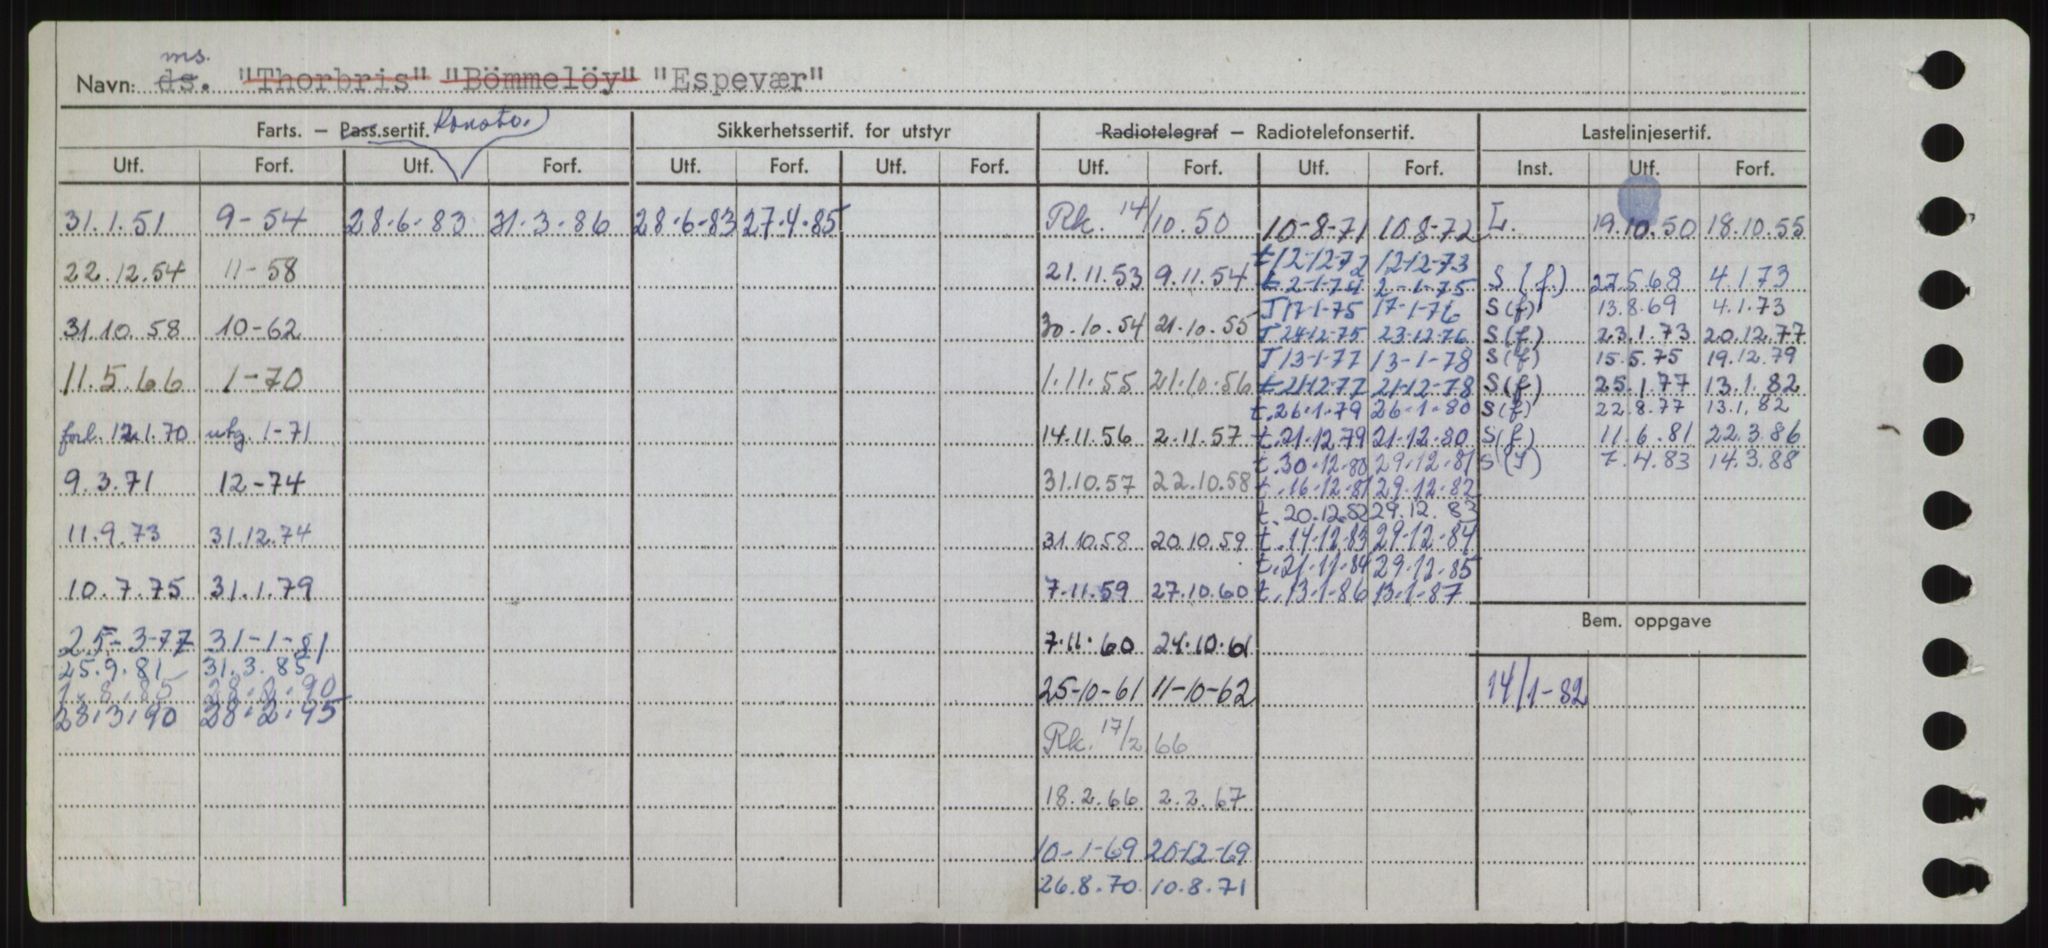 ms.
Navn: ds. "Thorbris" "Bömmelöy" "Espevær"
Farts. – Pass.sertif. Sikkerhetssertif. for utstyr Radiotelegraf – Radiotelefonsertif. Lastelinjesertif.
Utf. Forf. Utf. Forf. Utf. Forf. Utf. Forf. Utf. Forf. Utf. Forf. Inst. Utf. Forf.
31.1.51 9-54 28.6.83 31.3.86 28.6-83 27.4.85 Rk. 14/10.50 10-8-71 10.8-72 L. 19.10.50 18.10.55
t 12-12-72 12-12-73
22.12.54 11-58 21.11.53 9.11.54 t 2-1-74 2-1-75 S (f.) 27.5.68 4.1.73
J 17-1-75 17-1-76 S (f) 13.8.69 4.1.73
31.10.58 10-62 30.10.54 21.10.55 J 24-12-75 23-12-76 S (f) 23.1.73 20.12.77
J 13-1-77 13-1-78 S (f) 15.5.75 19.12.79
11.5.66 1-70 1.11.55 21.10.56 t 21-12-77 21-12-78 S (f) 25.1.77 13.1.82
t. 26.1.79 26-1-80 S (f) 22.8.77 13.1.82
forl. 12.1.70 utg. 1-71 14.11.56 2.11.57 t. 21.12.79 21-12-80 S (f.) 11.6.81 22.3.86
t. 30.12.80 29.12.81 S (f) 7.4.83 14.3.88
9.3.71 12-74 31.10.57 22.10.58 t. 16.12.81 29.12.82
t. 20.12.82 29.12.83
11.9.73 31.12.74 31.10.58 20.10.59 t. 14.12.83 29-12-84
t. 21-11-84 29.12.85
10.7.75 31.1.79 7.11.59 27.10.60 t. 13-1-86 13-1-87
Bem. oppgave
25-3-77 31-1-81 7.11.60 24.10.61
25.9.81 31.3.85
1.8.85 28.2.90 25-10-61 11-10-62 14/1-82
28.3.90 28.2.95
Rk. 17/2.66
18.2.66 2.2.67
10-1-69 20-12-69
26.8.70 10.8.71